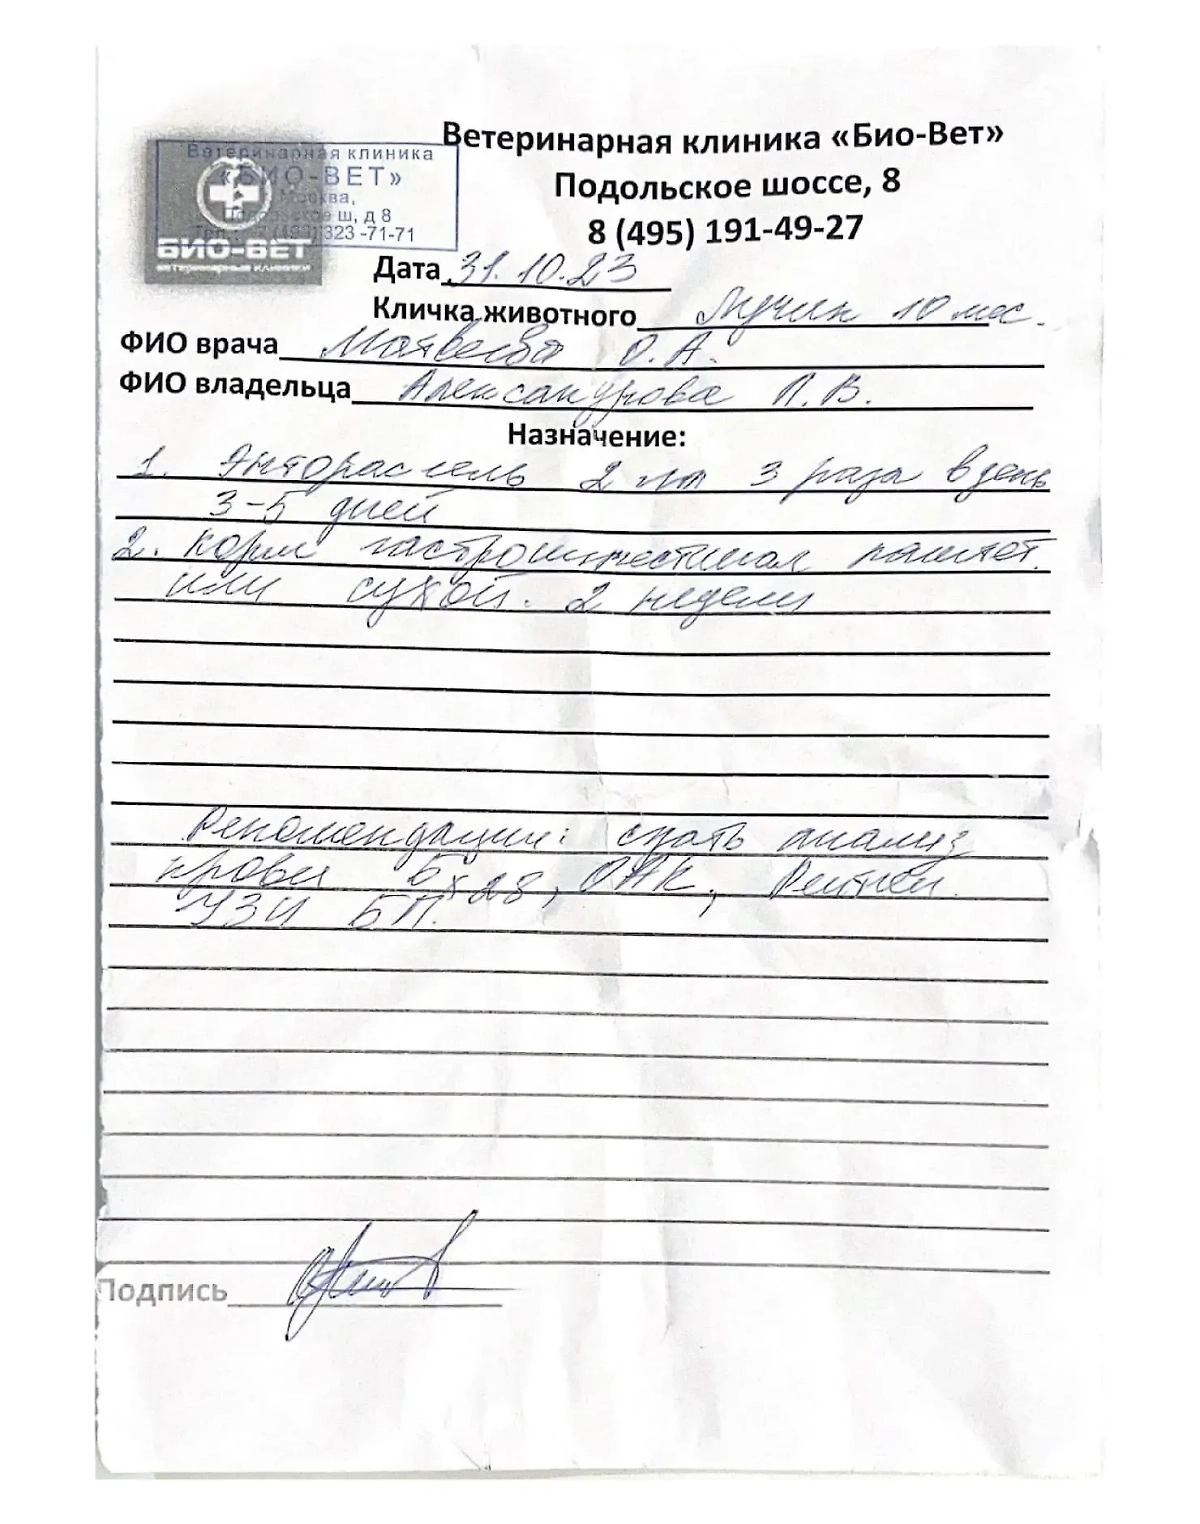 Ветеринарная клиника «Био-Вет»
Подольское шоссе, 8
8 (495) 191-49-27
Ветеринарная клиника
«БИО-ВЕТ»
Москва,
Подольское ш, д 8
323 -71-71
БИО-ВЕТ
ветеринарные клиники
Дата 31.10.23
Кличка животного 10 мес.
ФИО врача Матвеева О.А.
ФИО владельца Александрова Л.В.
Назначение:
1. Энторосгель 2 мл 3 раза в день
3-5 дней
2. Корм гастроинтестинал паштет.
или сухой. 2 недели
Рекомендации: сдать анализ
крови Бх28, ОАК,
УЗИ БП.
Подпись